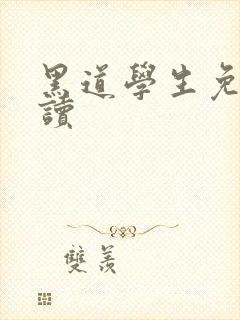 黑道學生免
讀
雙羨